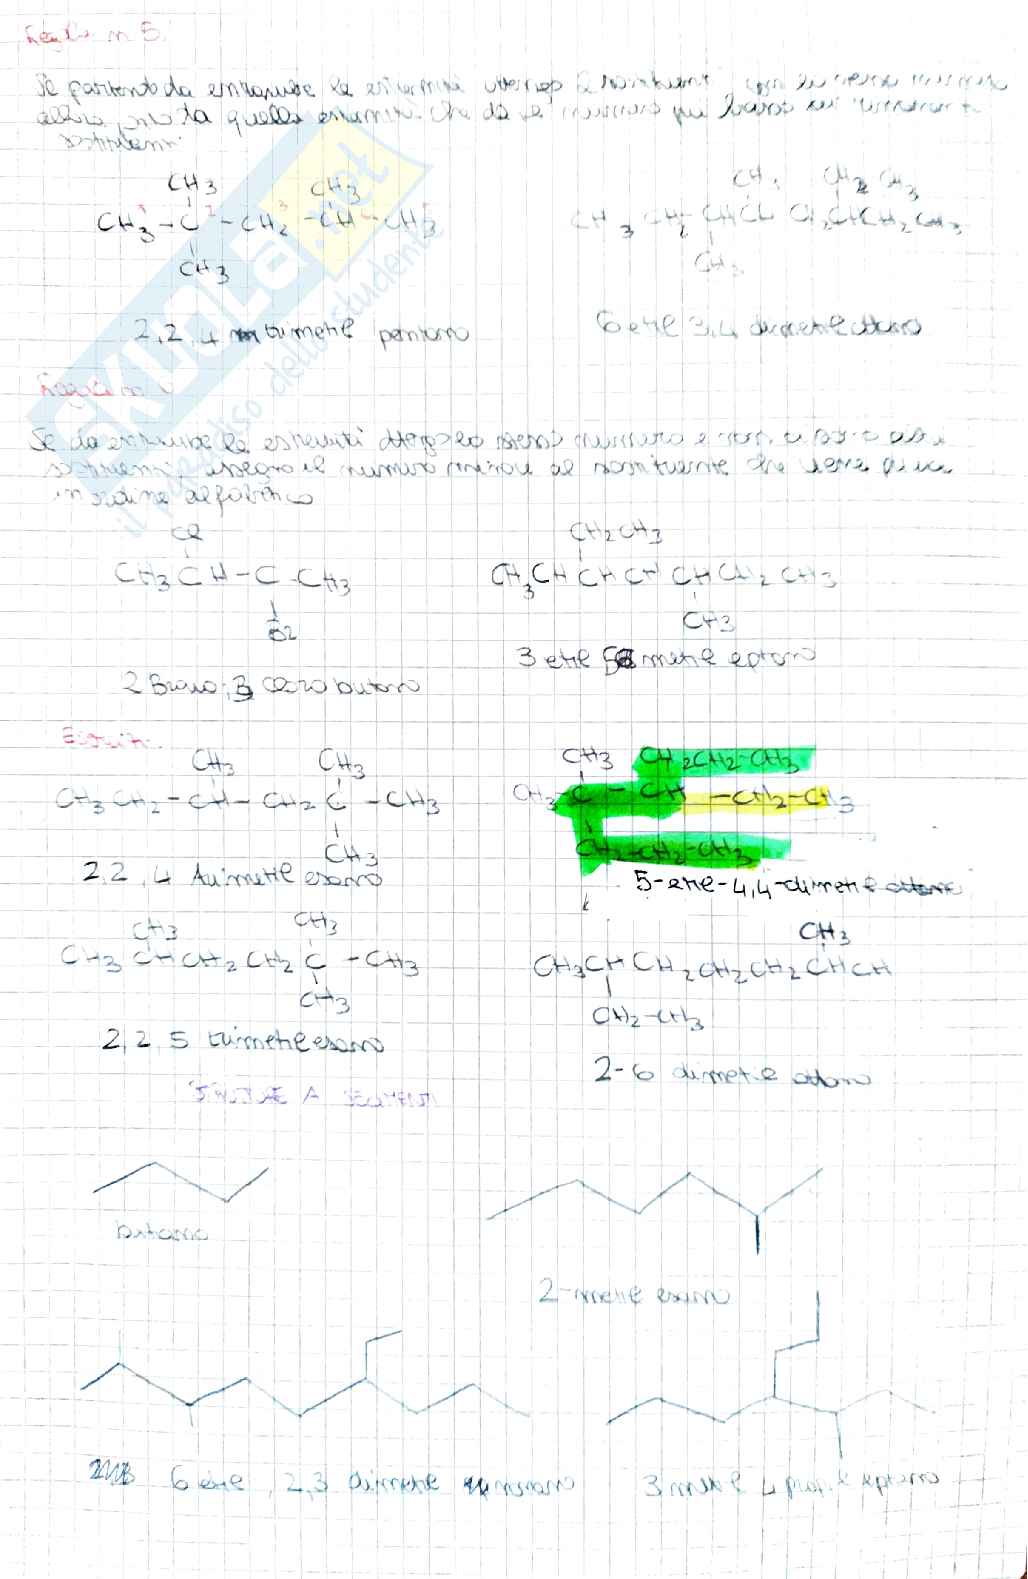 Regola n 5.
Se partendo da entrambe le estremità ottengo
allora quella estremità che dà il numero più basso ai rimanenti
sostituenti.
CH3 CH3
CH3 - C - CH2 - CH - CH3
CH3
2,2,4 trimetil pentano
CH3 CH2 CH3
CH3 CH2 CH CH CH2 CH CH2 CH3
CH3
6 etil 3,4 dimetil ottano
Regola n
Se da entrambe le estremità ottengo lo stesso numero e
sostituenti, assegno il numero minore al sostituente che viene prima
in ordine alfabetico
Cl
CH3 CH - C - CH3
Br
2 Bromo, 3 cloro butano
CH2 CH3
CH3 CH CH CH CH CH2 CH3
CH3
3 etil 5 metil eptano
Esercizi.
CH3 CH3
CH3 CH2 - CH - CH2 C - CH3
CH3
2,2,4 trimetil esano
CH3 CH2CH2-CH3
CH3-C - CH - CH2-CH3
CH2-CH2-CH3
5-etil-4,4-dimetil ottano
CH3 CH3
CH3 CH CH2 CH2 C - CH3
CH3
2,2,5 trimetil esano
CH3
CH3CH CH2CH2CH2CHCH
CH2-CH3
2-6 dimetil ottano
STRUTTURE A SEGMENTI
butano
2-metil esano
6 etil, 2,3 dimetil nonano
3 metil 4 propil eptano
SKUOLA.net
il paradiso dello studente